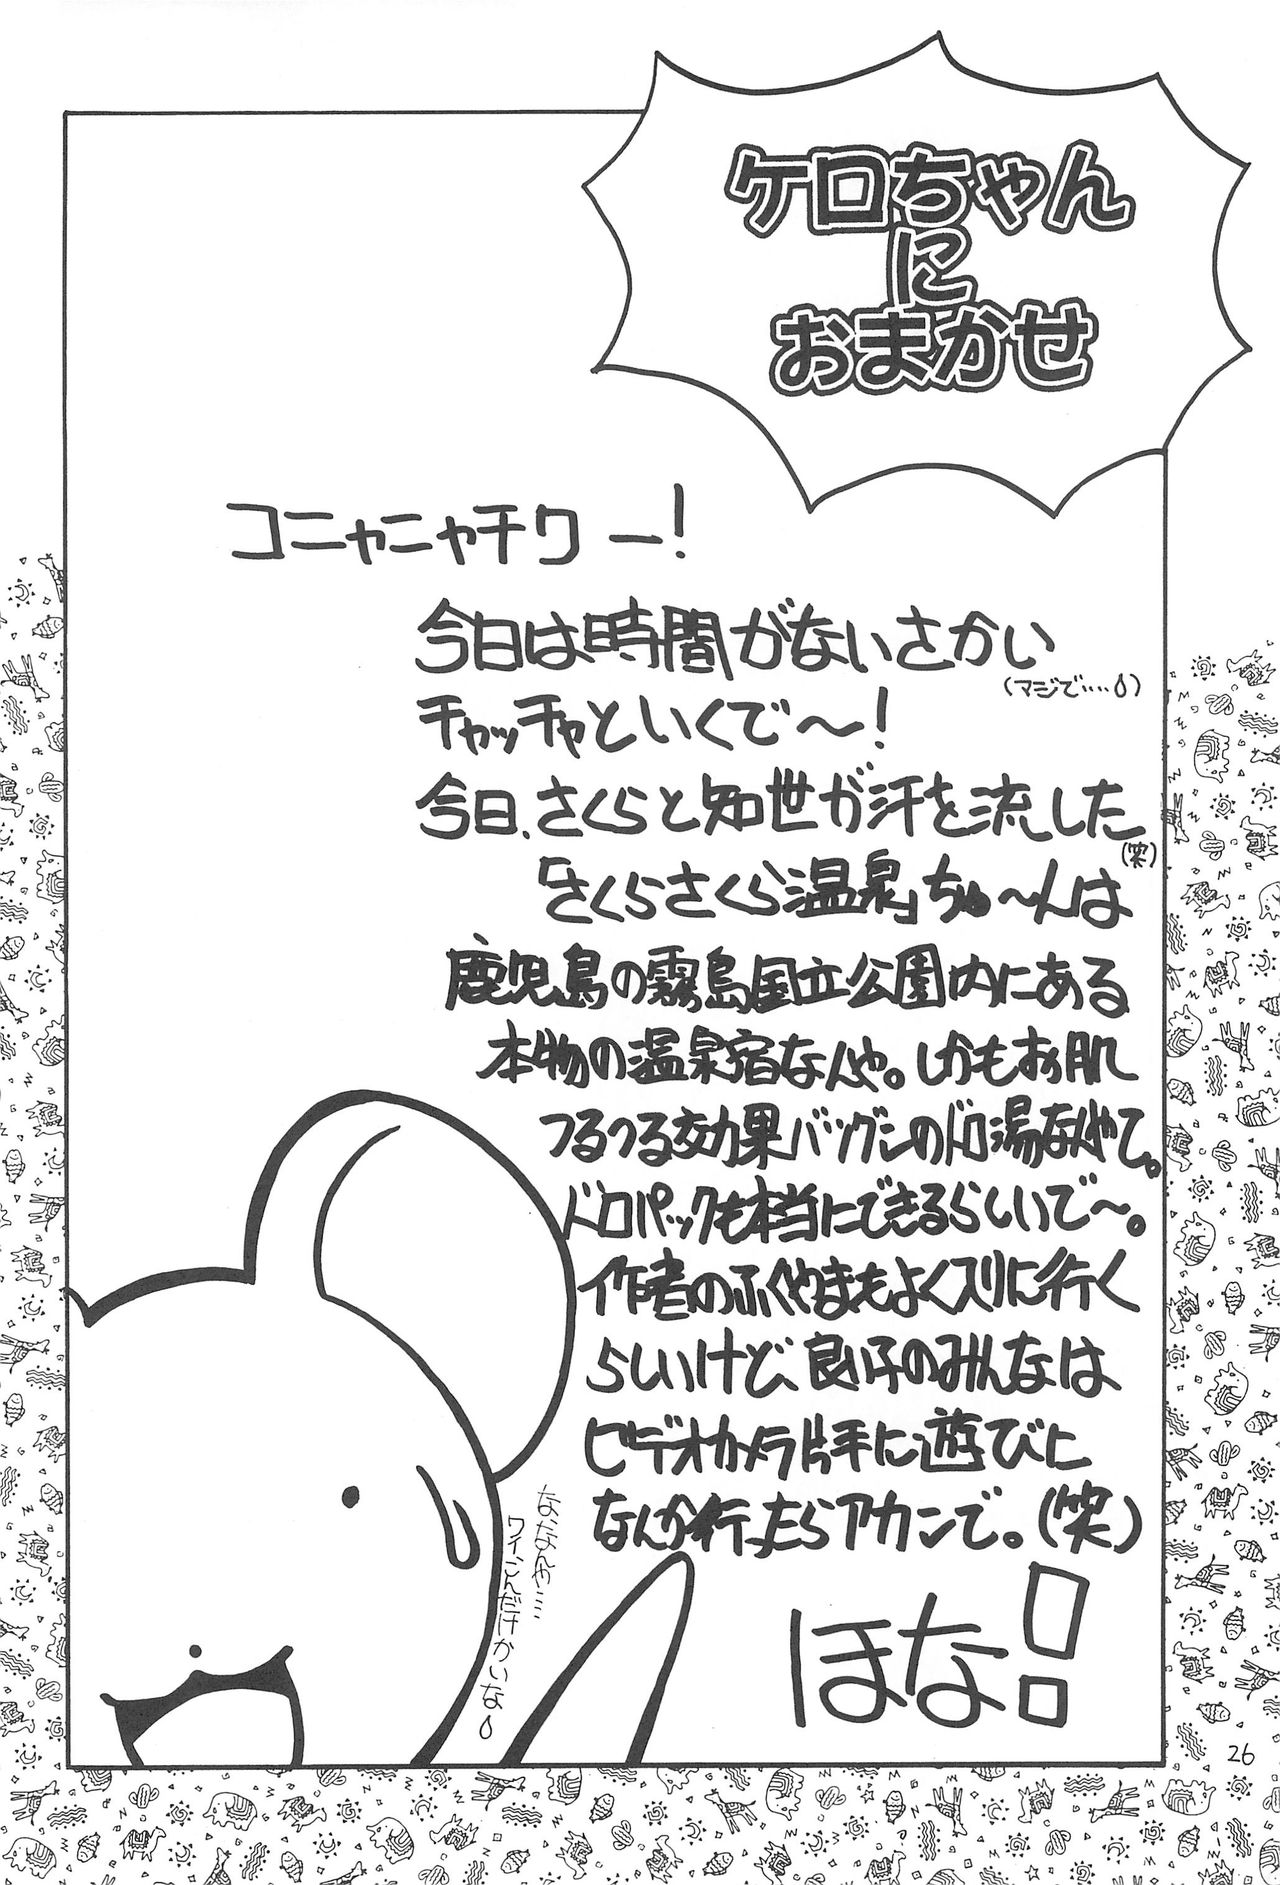 ケロちゃん
に
おまかせ
コニャニャチワー!
今日は時間がないさかい
(マジで‥‥)
チャッチャといくで〜!
今日、さくらと知世が汗を流した
(笑)
「さくらさくら温泉」ちゅ〜んは
鹿児島の霧島国立公園内にある
本物の温泉宿なんや。しかもお肌
つるつる効果バツグンのドロ湯なんやて。
ドロパックも本当にできるらしいで〜。
作者のふくやまもよくスリに行く
らしいけど、良い子のみんなは
ビデオカメラ片手に遊びに
なんか行ったらアカンで。(笑)
ほな!
なんや‥‥
ワイ、こんだけかいな
26